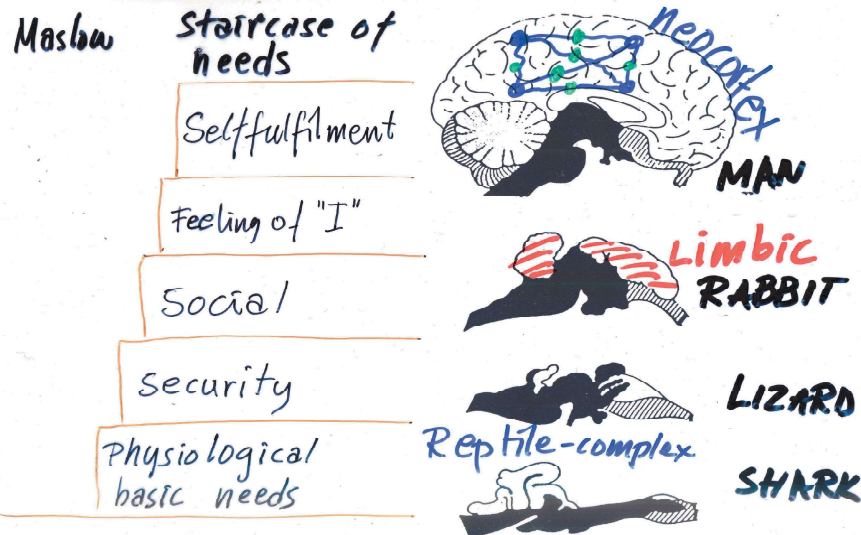 Maslow
Staircase of
needs
Selffulfilment
Feeling of "I"
Social
Security
Physiological
basic needs
neocortex
MAN
Limbic
RABBIT
LIZARD
Reptile-complex
SHARK